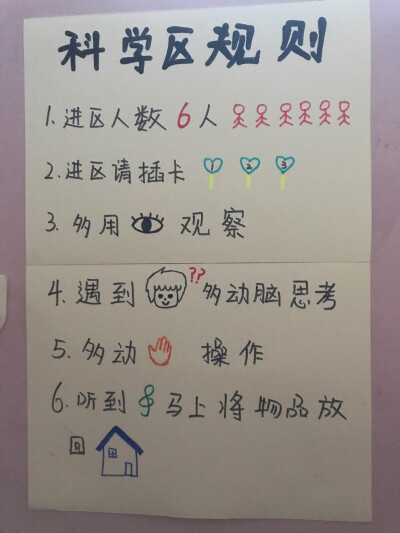 科学区规则
1.进区人数6人
2.进区请插卡 1 2 3
3.多用观察
4.遇到??多动脑思考
5.多动操作
6.听到马上将物品放
回